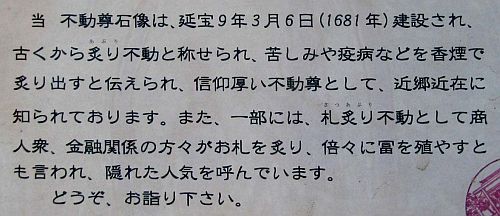 当 不動尊石像は、延宝9年3月6日(1681年)建設され、
古くから炙り不動と称せられ、苦しみや疫病などを香煙で
炙り出すと伝えられ、信仰厚い不動尊として、近郷近在に
知られております。また、一部には、札炙り不動として商
人衆、金融関係の方々がお札を炙り、倍々に冨を殖やすと
も言われ、隠れた人気を呼んでいます。
どうぞ、お詣り下さい。